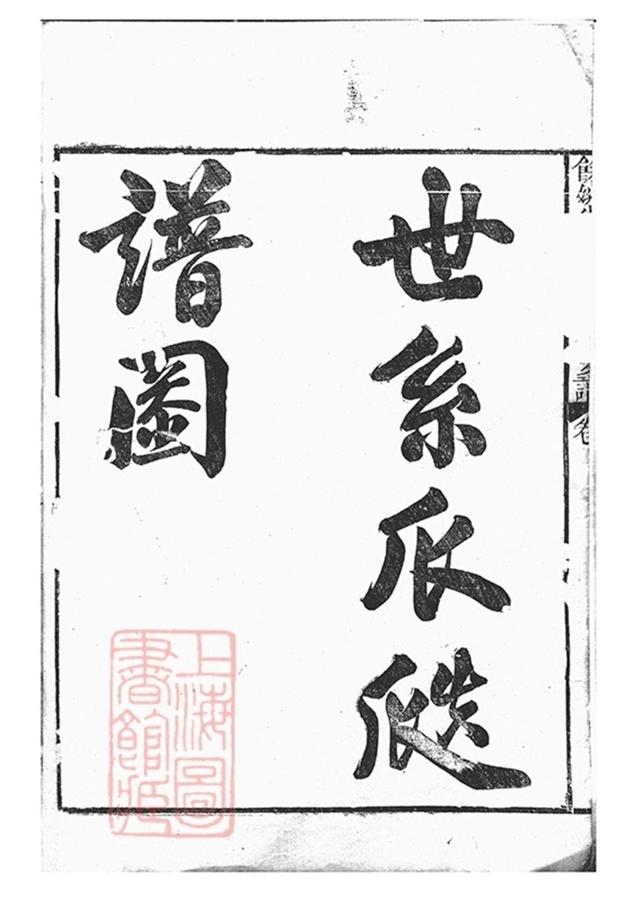 世系瓜瓞
譜圖
上海圖
書館藏